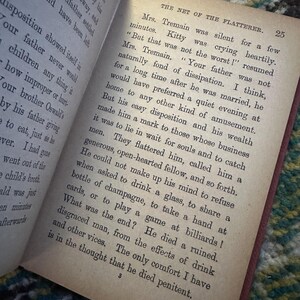 disposition show
Your father never
could deny any thing
how improper or
our brother Oroble
by his father going
to eat, just as
I had gone
went out of the
e child's broth,
ould was just
dozen minutes
afterwards
THE NET OF THE FLATTERER. 25
Mrs. Tremain was silent for a few
minutes. Kitty was crying heartily.
"But that was not the worst!" resumed
Mrs. Tremain. "Your father was not
naturally fond of dissipation. I think,
for a long time after he was married, he
would have preferred a quiet evening at
home to any other kind of amusement.
But his easy disposition and his wealth
made him a mark to those whose business
it was to lie in wait for souls and to catch
men. They flattered him, called him a
generous, open-hearted fellow, and so forth.
He could not make up his mind to refuse
when asked to drink a glass, to share a
bottle of champagne, to take a hand at
cards, or to play a game at billiards!
What was the end? He died a ruined,
disgraced man, from the effects of drink
and other vices. The only comfort I have
is in the thought that he died penitent,